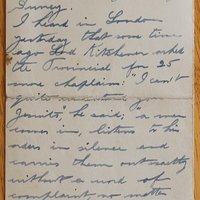 Surrey.
I heard in London
yesterday that some time
ago Lord Kitchener asked
the Provincial for 25
more chaplains. "I can't
quite understand you
Jesuits, he said; a man
comes in, listens to his
orders in silence and
carries them out exactly
without a word of
complaint no matter